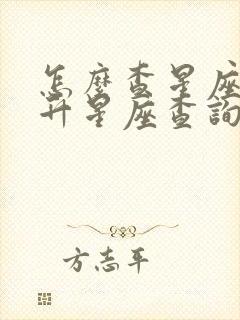 怎麼查星座
升星座查詢
方志平